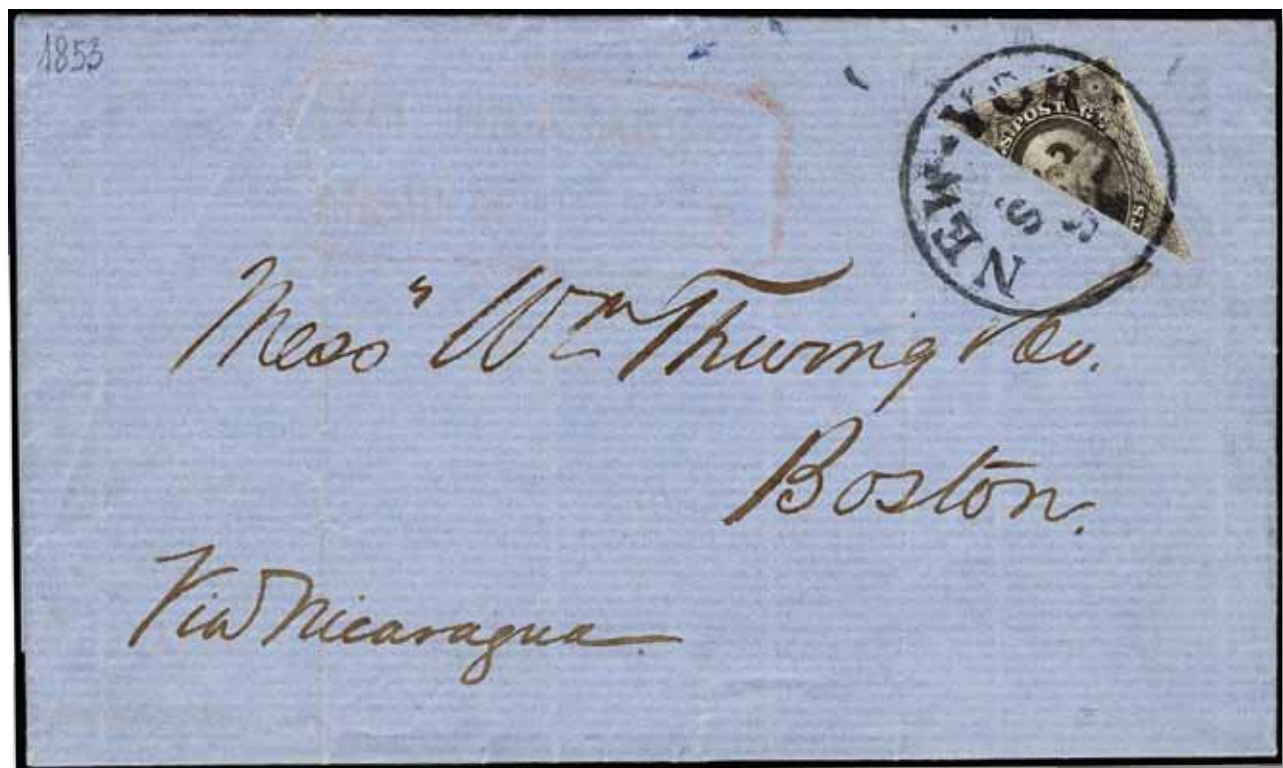 1853
NEW-YOR
S. POST
Messrs Wm Thwing & Co.
Boston.
Via Nicaragua